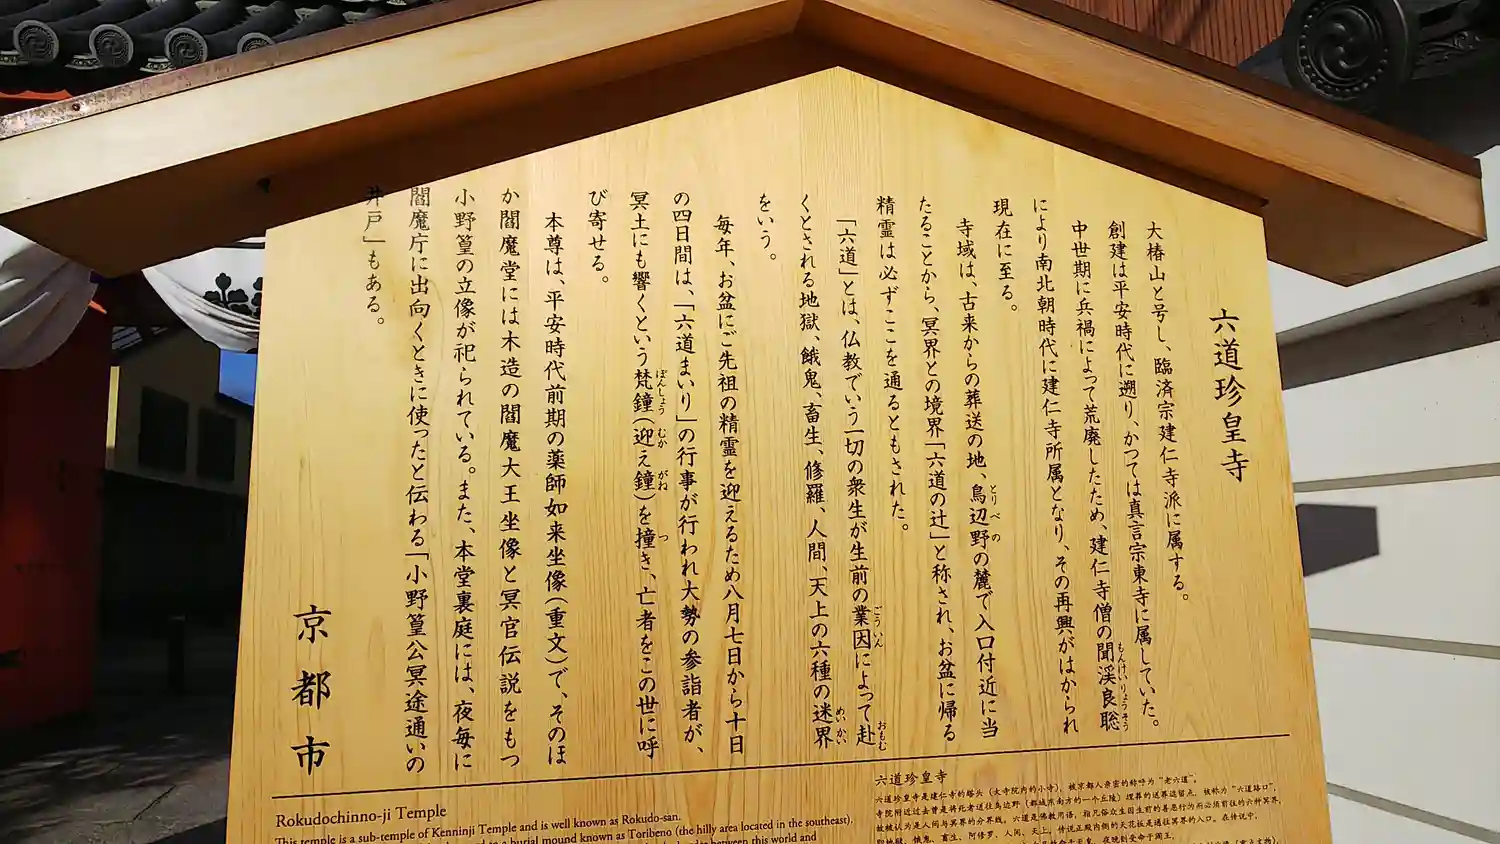 六道珍皇寺
大椿山と号し、臨済宗建仁寺派に属する。
創建は平安時代に遡り、かつては真言宗東寺に属していた。
中世期に兵禍によって荒廃したため、建仁寺僧の聞渓良聡
により南北朝時代に建仁寺所属となり、その再興がはかられ
現在に至る。
寺域は、古来からの葬送の地、鳥辺野の麓で入口付近に当
たることから、冥界との境界「六道の辻」と称され、お盆に帰る
精霊は必ずここを通るともされた。
「六道」とは、仏教でいう一切の衆生が生前の業因によって赴
くとされる地獄、餓鬼、畜生、修羅、人間、天上の六種の迷界
をいう。
毎年、お盆にご先祖の精霊を迎えるため八月七日から十日
の四日間は、「六道まいり」の行事が行われ大勢の参詣者が、
冥土にも響くという梵鐘(迎え鐘)を撞き、亡者をこの世に呼
び寄せる。
本尊は、平安時代前期の薬師如来坐像(重文)で、そのほ
か閻魔堂には木造の閻魔大王坐像と冥官伝説をもつ
小野篁の立像が祀られている。また、本堂裏庭には、夜毎に
閻魔庁に出向くときに使ったと伝わる「小野篁公冥途通いの
井戸」もある。
京都市
Rokudochinno-ji Temple
This temple is a sub-temple of Kenninji Temple and is well known as Rokudo-san.
to a burial mound known as Toribeno (the hilly area located in the southeast).
between this world and
六道珍皇寺
六道珍皇寺是建仁寺的塔头（大寺院内的小寺），被京都人亲密的称呼为“老六道”。